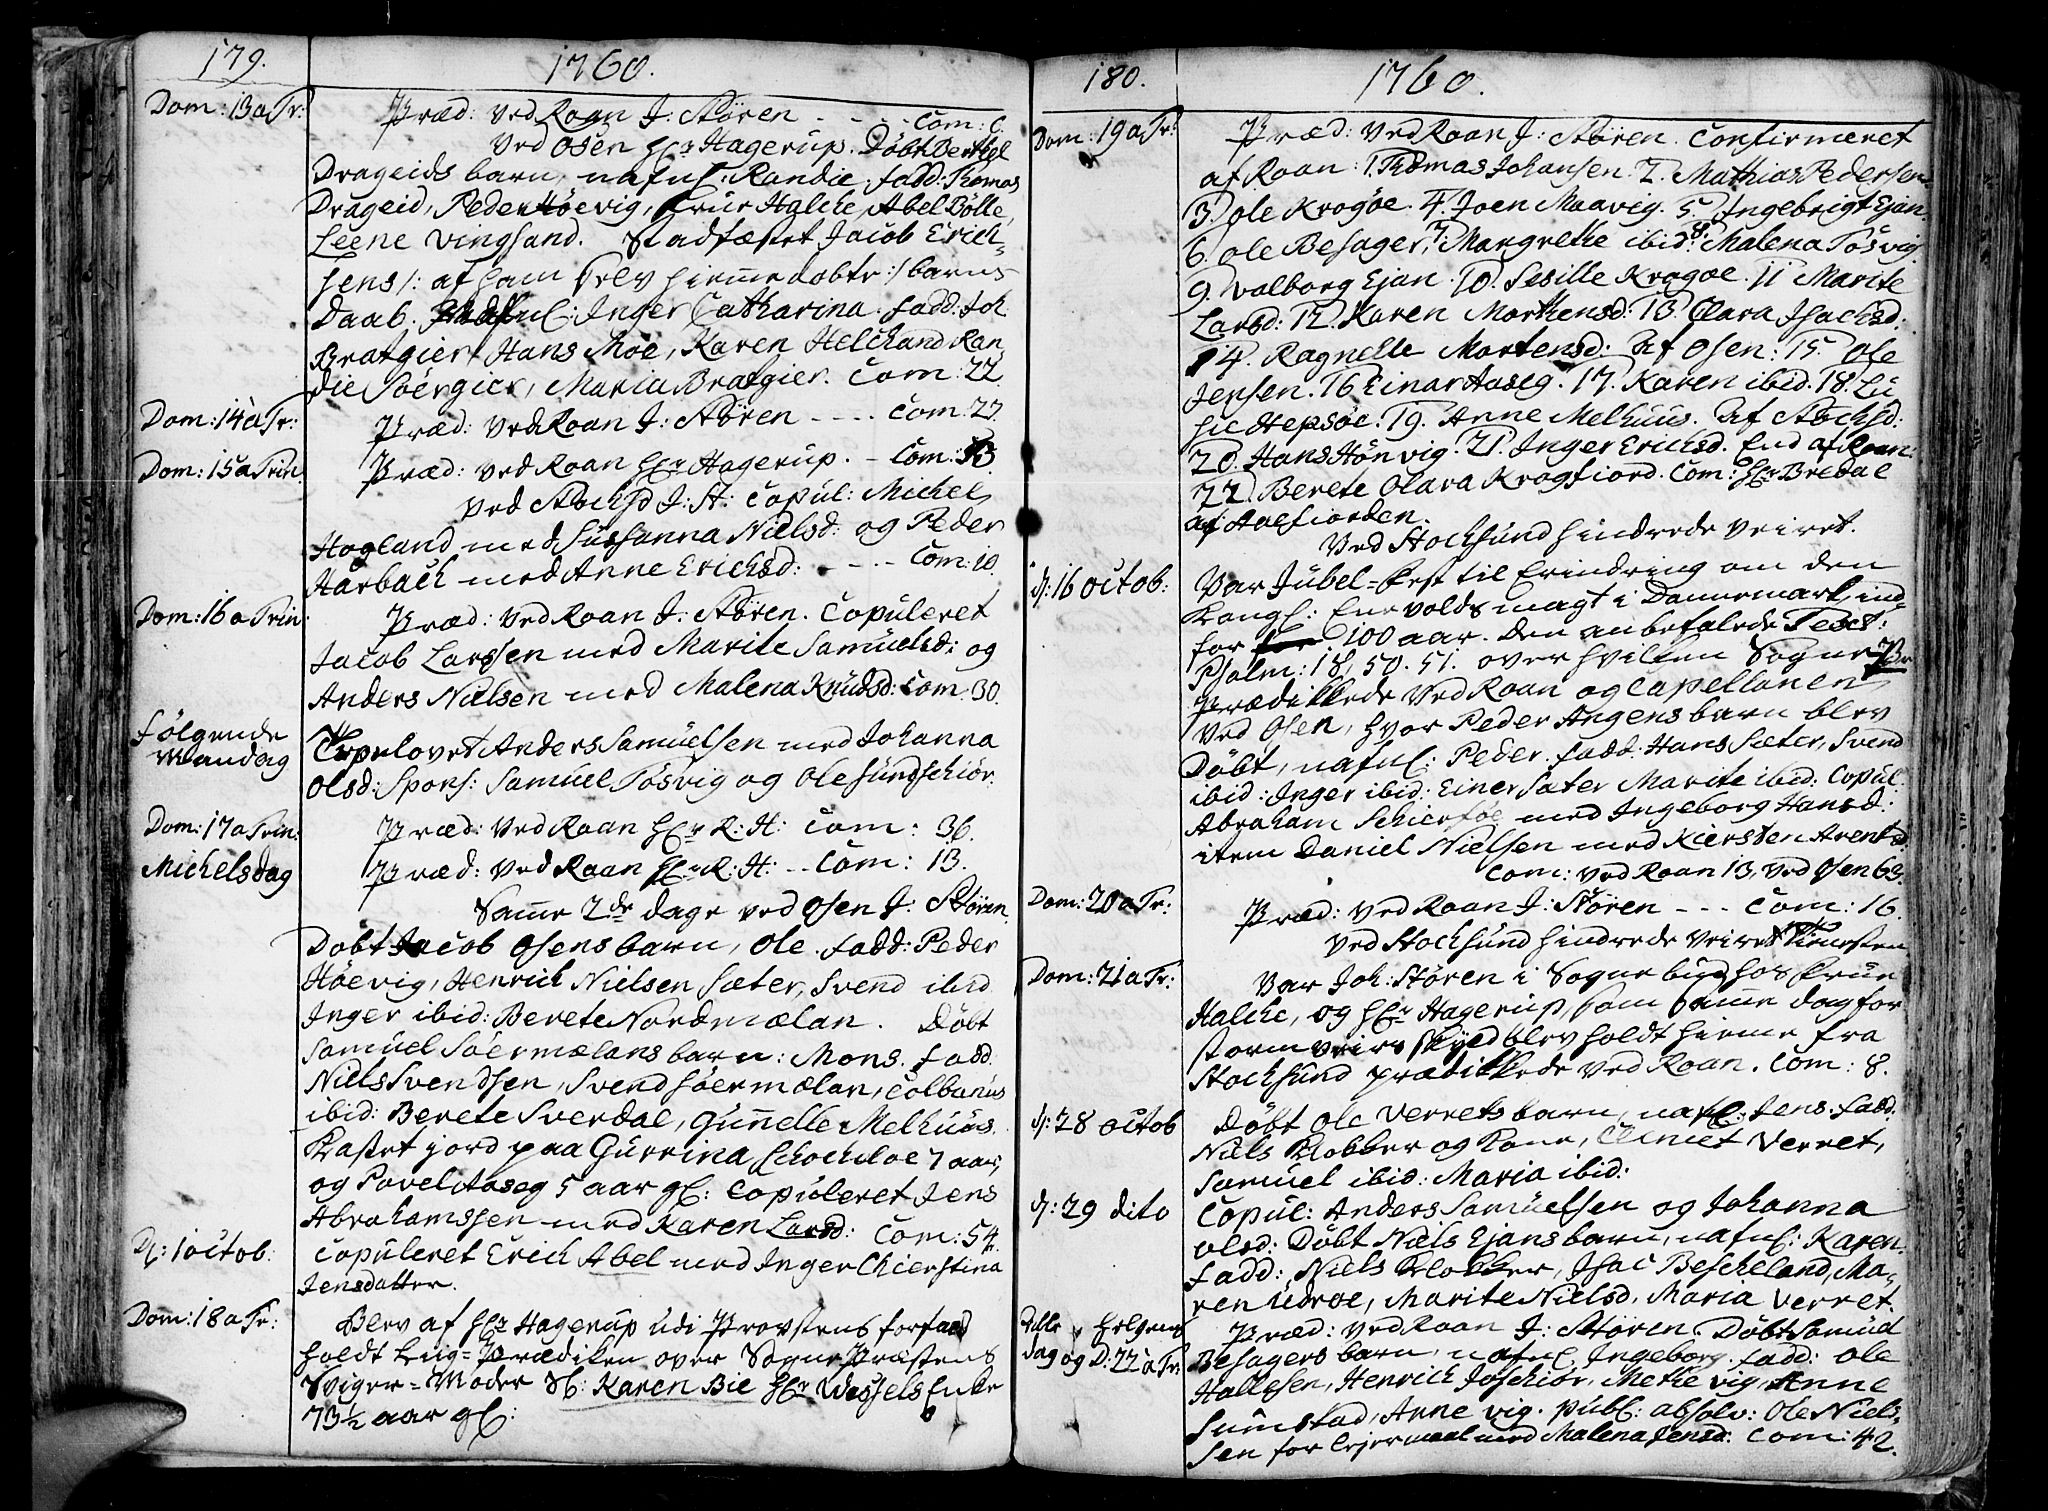 179.
1760.
Dom: 13 a Tr:
Præd: ved Roan J: Stören - - - - Com: 6.
Ved Osen Hr Hagerup. Döbt Berthel
Drageids barn, nafnl: Randie. Fadd: Thomas
Drageid, Peder Höevig, Frue Halche, Abel Bölle,
Leene Vingsand. Stadfæstet Jacob Erich-
sens /: af ham selv hiemmedöbte :/ barns
daab, nafnl: Inger Catharina. Fadd: Joh:
Bratgier, Hans Moe, Karen Helchand Ran-
die Sörgier, Maria Bratgier. Com: 22.
Dom: 14 a Tr:
Præd: ved Roan J: Stören - - - - Com: 27.
Dom: 15 a Trin.
Præd: ved Roan Hr Hagerup. - Com: 53.
Ved Stochsd J: St: Copul: Michel
Hogland med Sussanna Nielsd: og Peder
Harbach med Anne Erichsd: - - - - Com: 10.
Dom: 16 a Trin:
Præd: ved Roan J: Stören. Copuleret
Jacob Larssen med Marite Samuelsd: og
Anders Nielsen med Malena Knudsd: Com: 30.
Fölgende
Mandag
Trolovet Anders Samuelsen med Johanna
Olsd: Spons: Samuel Tösvig og Ole Sundschiör.
Dom: 17 a Trin:
Præd: ved Roan Hr R: H: Com: 36.
Michelsdag
Præd: ved Roan Hr R: H: - - Com: 13.
Samme 2de dage ved Osen J: Stören.
Döbt Jacob Osens barn, Ole. Fadd: Peder
Höevig, Henrich Nielsen Sæter, Svend ibid
Inger ibid: Berete Nordmælan. Döbt
Samuel Söermælans barn: Mons. Fadd:
Niels Svendsen, Svend Söermælan, Colbanus
ibid: Berete Sverdal, Gunnelle Melhuus.
Kastet jord paa Gurrina Schochloe 7 aar,
og Povel Aaseg 5 aar gl: Copuleret Jens
Abrahamssen med Karen Larsd: Com: 54.
D: 1 octob:
Copuleret Erich Abel med Inger Chierstina
Jensdatter.
Dom: 18 a Tr:
Blev af Hr Hagerup udi Provstens forfald
holdt Liig-Prædiken over Sogne Præstens
Sviger-Moder Sl: Karen Bie Hr Wessels Enke
73½ aar gl:
180.
1760.
Dom: 19 a Tr:
Præd: ved Roan J: Stören. Confirmeret
af Roan: 1. Thomas Johansen. 2. Mathias Pedersen
3. Ole Krogöe. 4. Joen Maavig. 5. Ingebrigt Ejan.
6. Ole Besager, 7. Margrethe ibid: 8. Malena Tösvig
9. Valborg Ejan. 10. Sesille Krogöe. 11. Marite
Larsd: 12. Karen Morthensd: 13. Clara Isachsd:
14. Ragnelle Mortensd: Af Osen: 15. Ole
Jensen. 16 Einar Aaseg. 17. Karen ibid. 18. Lu-
sie Hepsöe. 19. Anne Melhuus. Af Stochsd:
20. Hans Hönvig. 21. Inger Erichsd. End af Roan:
22. Berete Olara Krogfiord. Com: Hr Bredal
af Aaefiorden.
Ved Stochsund hindrede veiret.
D: 16 octob:
Var Jubel-Fest til Erindring om den
Kongl: Enevoldsmagt i Dannemark ind-
for for 100 aar. Den anbefalede Text:
Psalm: 18, 50. 51. over hvilken Sogne Pr
prædikkede ved Roan og Capellanen
ved Osen, hvor Peder Angens barn blev
Döbt, nafnl: Peder. Fadd: Hans Sæter, Svend
ibid: Inger ibid: Einer Sæter Marite ibid: Copul:
Abraham Schierföe med Ingeborg Hansd:
item Daniel Nielsen med Kiersten Arentsd.
Com: ved Roan 13, ved Osen 63.
Dom: 20 a Tr:
Præd: ved Roan J: Stören - - - Com: 16.
Ved Stochsund hindrede veiret Tienesten
Dom: 21 a Tr:
Var Joh: Stören i Sognebud hos Frue
Halche, og Hr Hagerup, som samme dag for
stormveirs skyld blev holdt hiemme fra
Stochsund prædikkede ved Roan. Com: 8.
D: 28 octob
Döbt Ole Verrets barn, nafnl: Jens. Fadd.
Niels Klokker og Kone, Clemet Verret,
Samuel ibid: Maria ibid:
D: 29 dito
Copul: Anders Samuelsen og Johanna
Olsd: Döbt Niels Ejans barn, nafnl: Karen.
Fadd: Niels Klokker, Isac Bescheland, Ma-
ren Udroe, Marite Nielsd, Maria Verret.
Alle Helgens
dag og D: 22 a Tr:
Præd: ved Roan J: Stören. Döbt Samuel
Besagers barn, nafnl Ingeborg. Fadd: Ole
Hallesen, Henrich Joschiör, Mette Vig, Anne
Sumstad, Anne Vig. Publ: absolv: Ole Niels-
sen for Lejermaal med Malena Jensd: Com: 42.